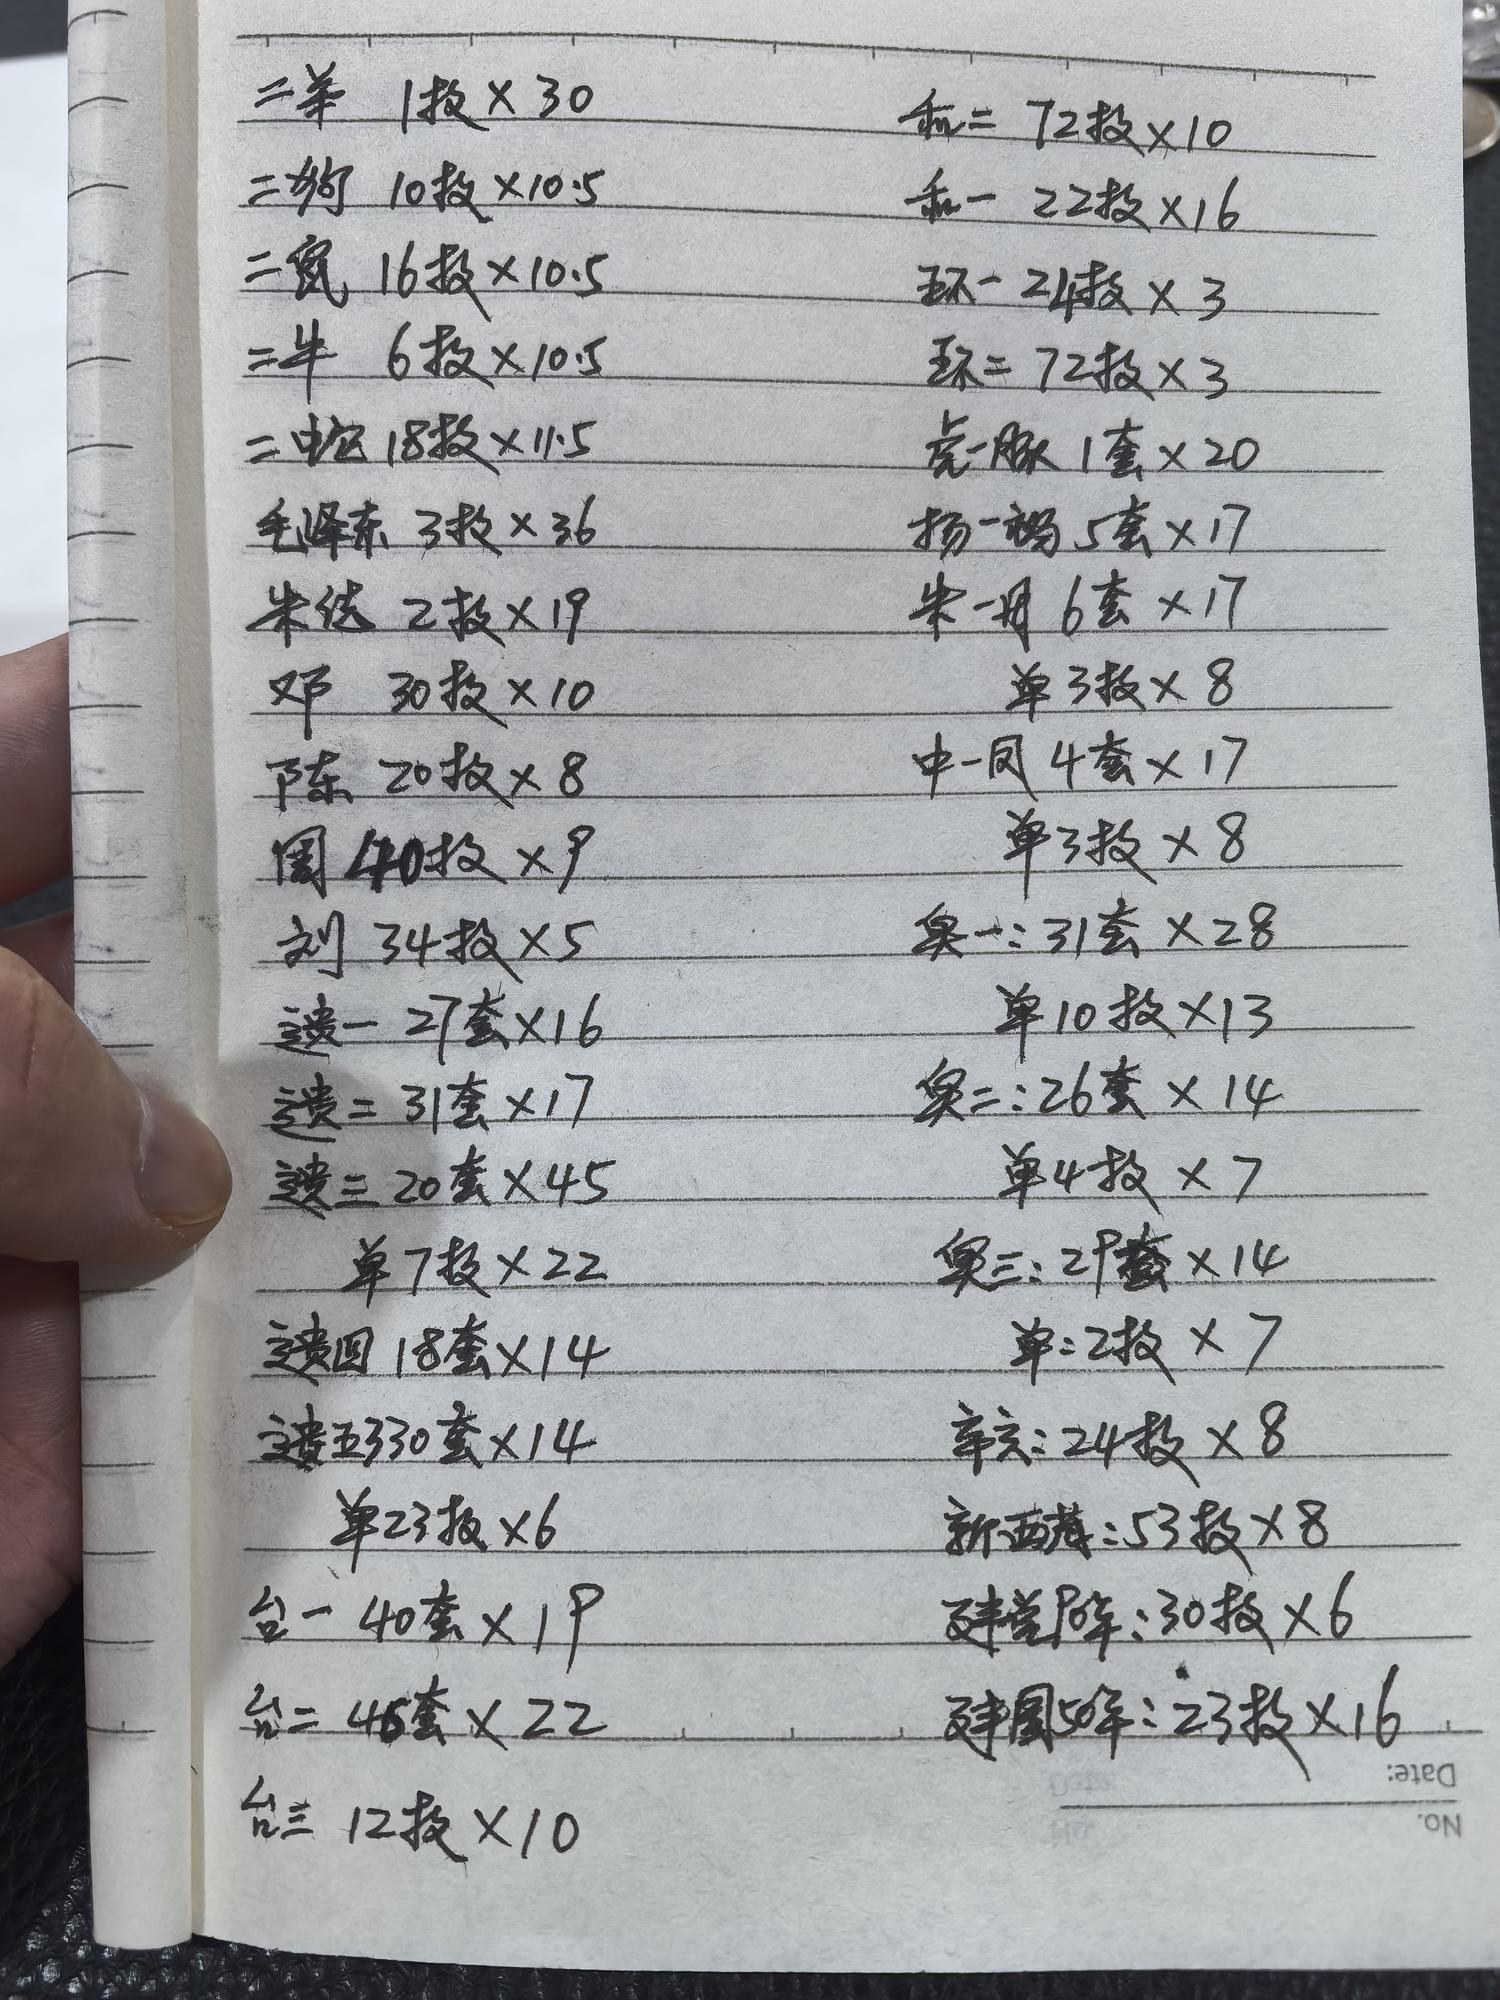 二羊 1枚×30
二狗 10枚×10.5
二鼠 16枚×10.5
二牛 6枚×10.5
二蛇 18枚×11.5
毛泽东 3枚×36
朱德 2枚×19
邓 30枚×10
陈 20枚×8
周 40枚×9
刘 34枚×5
遗一 27套×16
遗二 31套×17
遗三 20套×45
单7枚×22
遗四 18套×14
遗五330套×14
单23枚×6
台一 40套×19
台二 46套×22
台三 12枚×10
和二 72枚×10
和一 22枚×16
环一 24枚×3
环二 72枚×3
虎一豚 1套×20
扬一褐 5套×17
朱一丹 6套×17
单3枚×8
中一 4套×17
单3枚×8
奥一:31套×28
单10枚×13
奥二:26套×14
单4枚×7
奥三:29套×14
单:2枚×7
辛亥:24枚×8
新西藏:53枚×8
建党90年:30枚×6
建国50年:23枚×16
Date:
No.